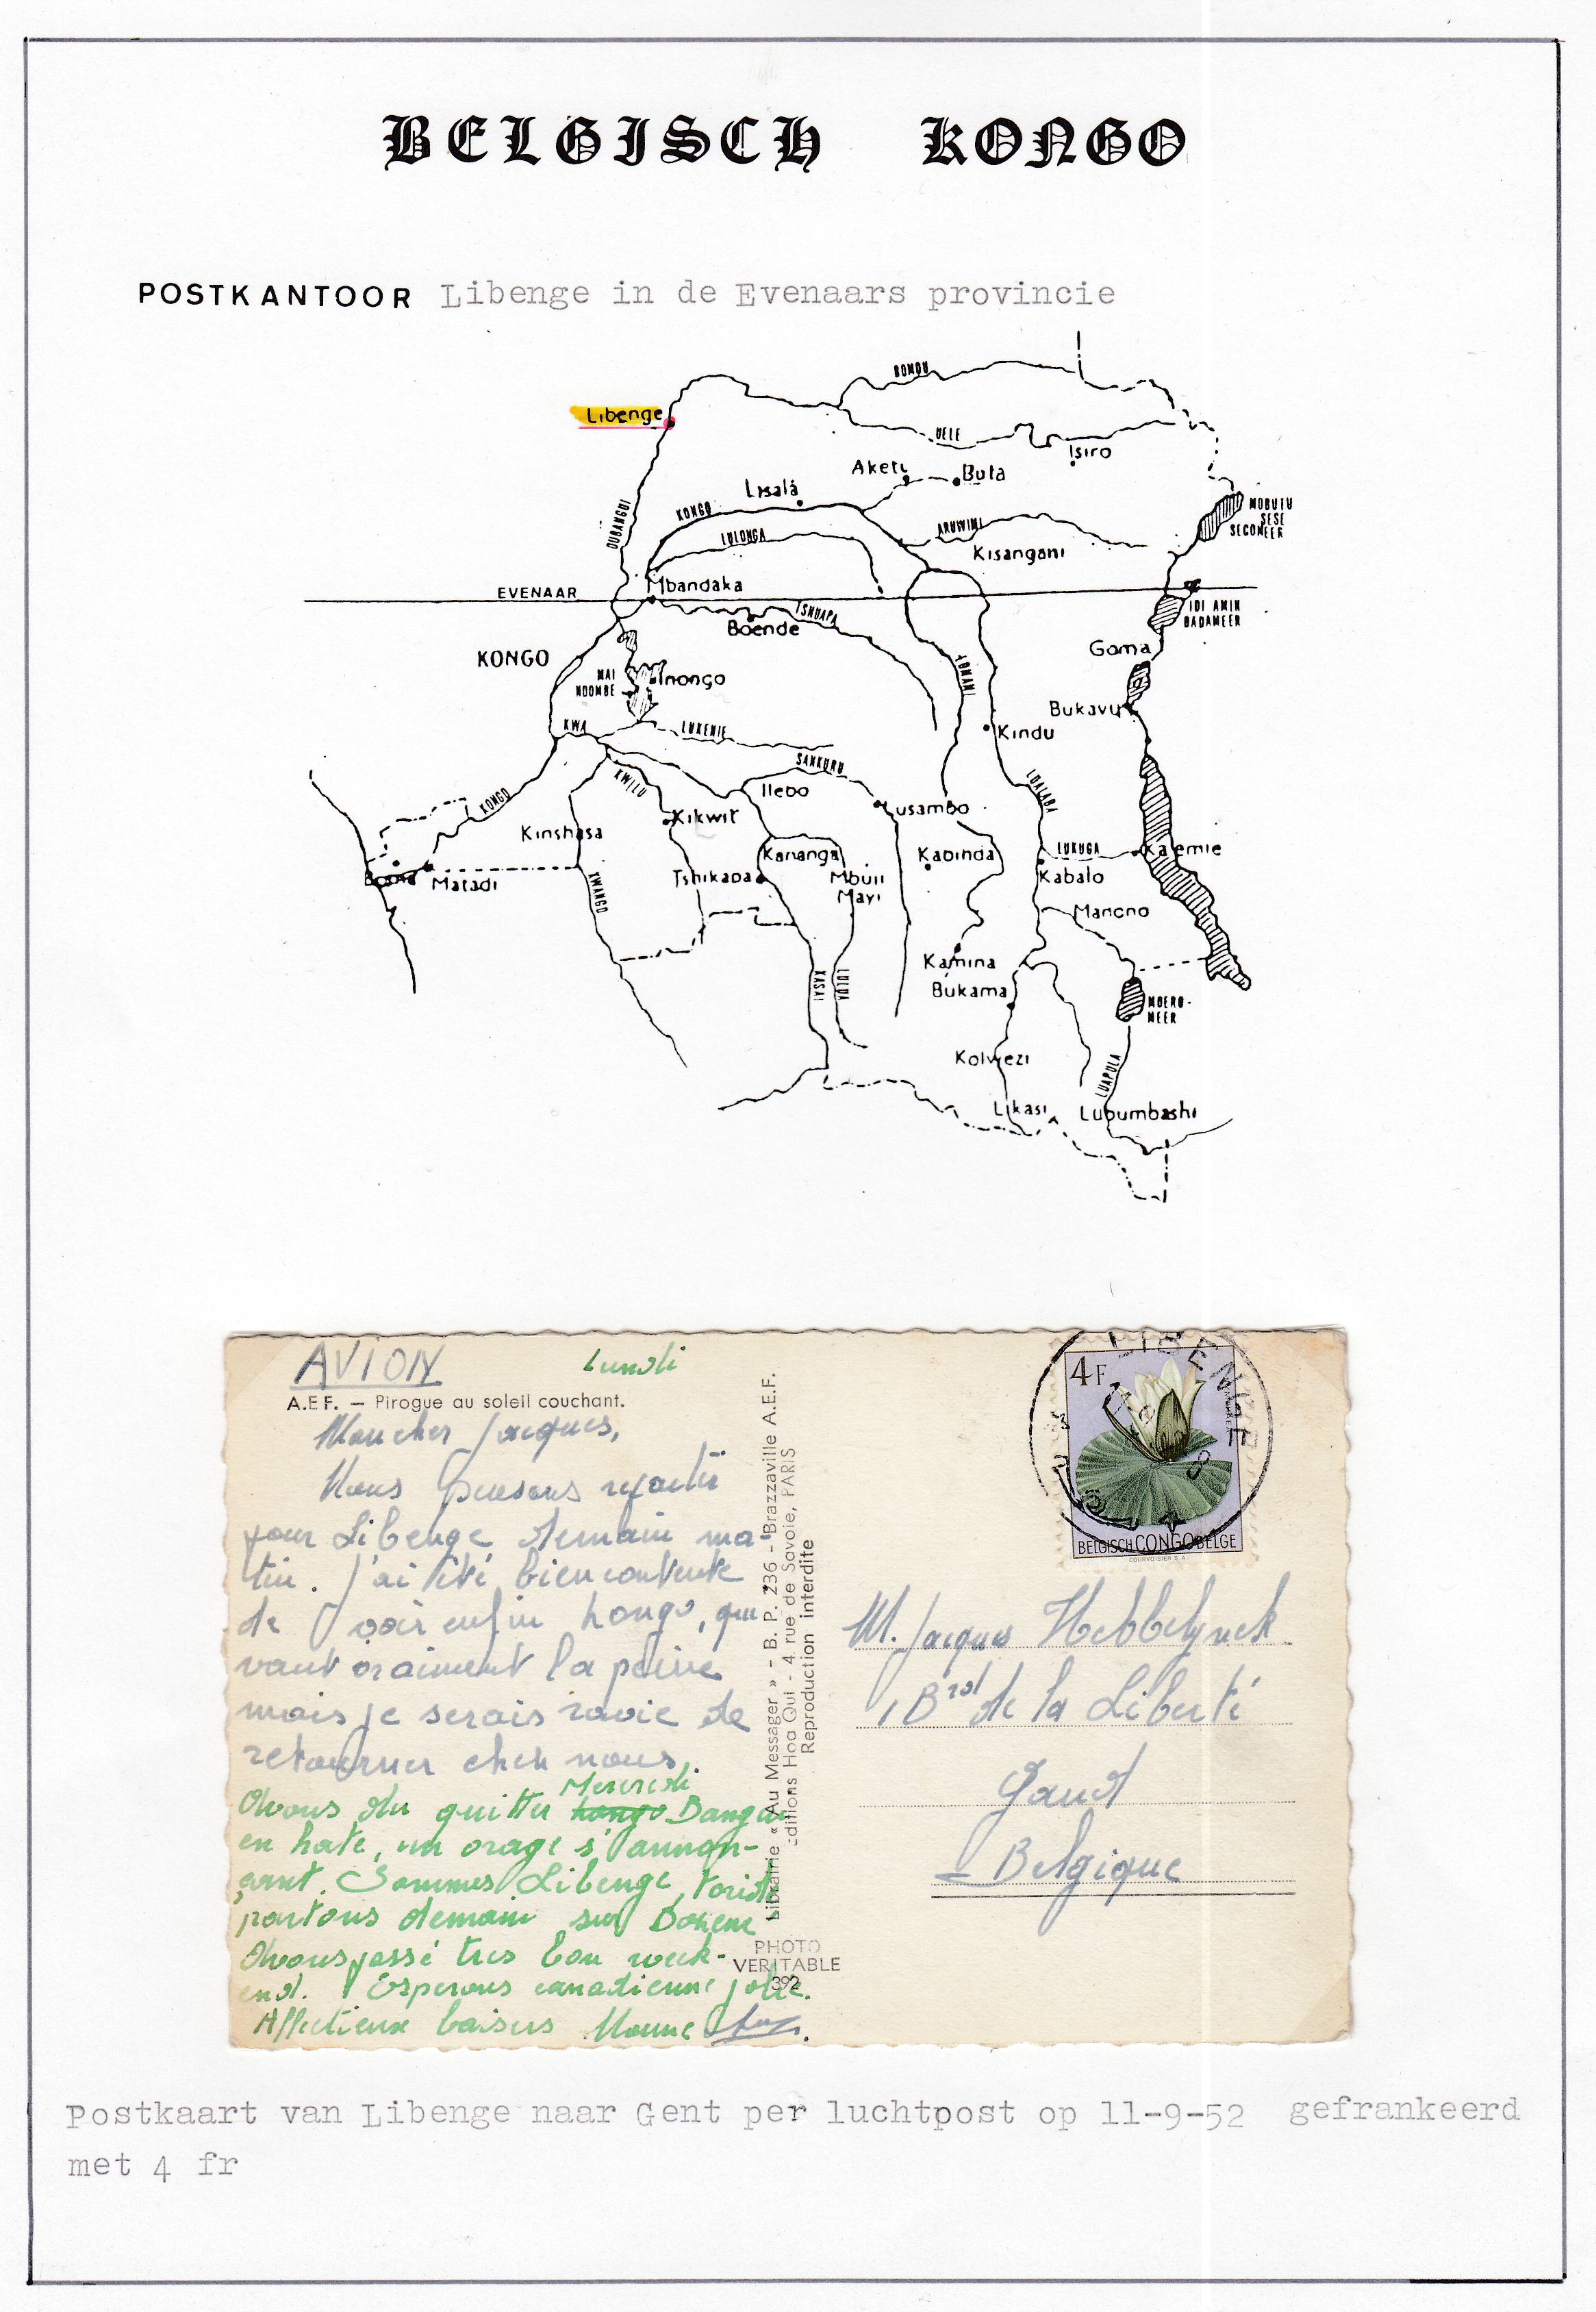 BELGISCH KONGO
POSTKANTOOR Libenge in de Evenaars provincie
BOMOU
Libenge
UELE
Isiro
Aketi
Buta
Lisala
OUBANGUI
KONGO
LULONGA
ARUWIMI
MOBUTU
SESE
SECOMEER
Kisangani
Mbandaka
EVENAAR
TSHUAPA
Boende
IDI AMIN
DADAMEER
KONGO
Goma
MAI
NDOMBE
Inongo
LOMAMI
Bukavu
KWA
LUKENIE
Kindu
SANKURU
KWILU
Ilebo
LUALABA
KONGO
Kikwit
Lusambo
Kinshasa
Kananga
Kabinda
LUKUGA
Kalemie
Boma
Matadi
KWANGO
Tshikapa
Mbuji
Mayi
Kabalo
Manono
Kamina
KASAI
LULUA
Bukama
MOERO-
MEER
Kolwezi
LUAPULA
Likasi
Lubumbashi
AVION
Lundi
A.E.F. — Pirogue au soleil couchant.
Mon cher Jacques,
Nous pensons repartir
pour Libenge demain ma-
tin. J'ai été bien contente
de voir enfin hongo, qui
vaut vraiment la peine
mais je serais ravie de
retourner chez nous.
Mercredi
Avons du quitter hongo Bangui
en hate, un orage s'annon-
çant. Sommes Libenge,
partons demain sur
Avons passé tres bon week-
end. Esperons canadienne jolie.
Affectieux baisers Moune
Librairie « Au Messager » - B. P. 236 - Brazzaville A.E.F.
Editions Hoa Qui - 4 rue de Savoie, PARIS
Reproduction interdite
PHOTO
VERITABLE
392
LIBENGE
4F
BELGISCH CONGO BELGE
COURVOISIER S.A.
M. Jacques Hebbelynck
1 Brd de la Liberté
Gand
Belgique
Postkaart van Libenge naar Gent per luchtpost op 11-9-52 gefrankeerd
met 4 fr